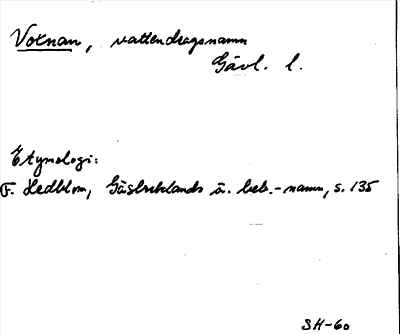 Voxnan, vattendragsnamn
Gävl. l.
Etymologi:
F. Hedblom, Gästriklands ä. beb.-namn, s. 135
SH-60